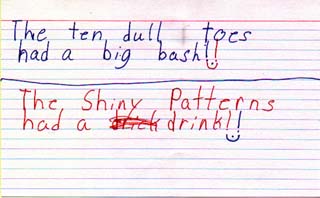 The ten dull toes
had a big bash!!
The Shiny Patterns
had a drink!!